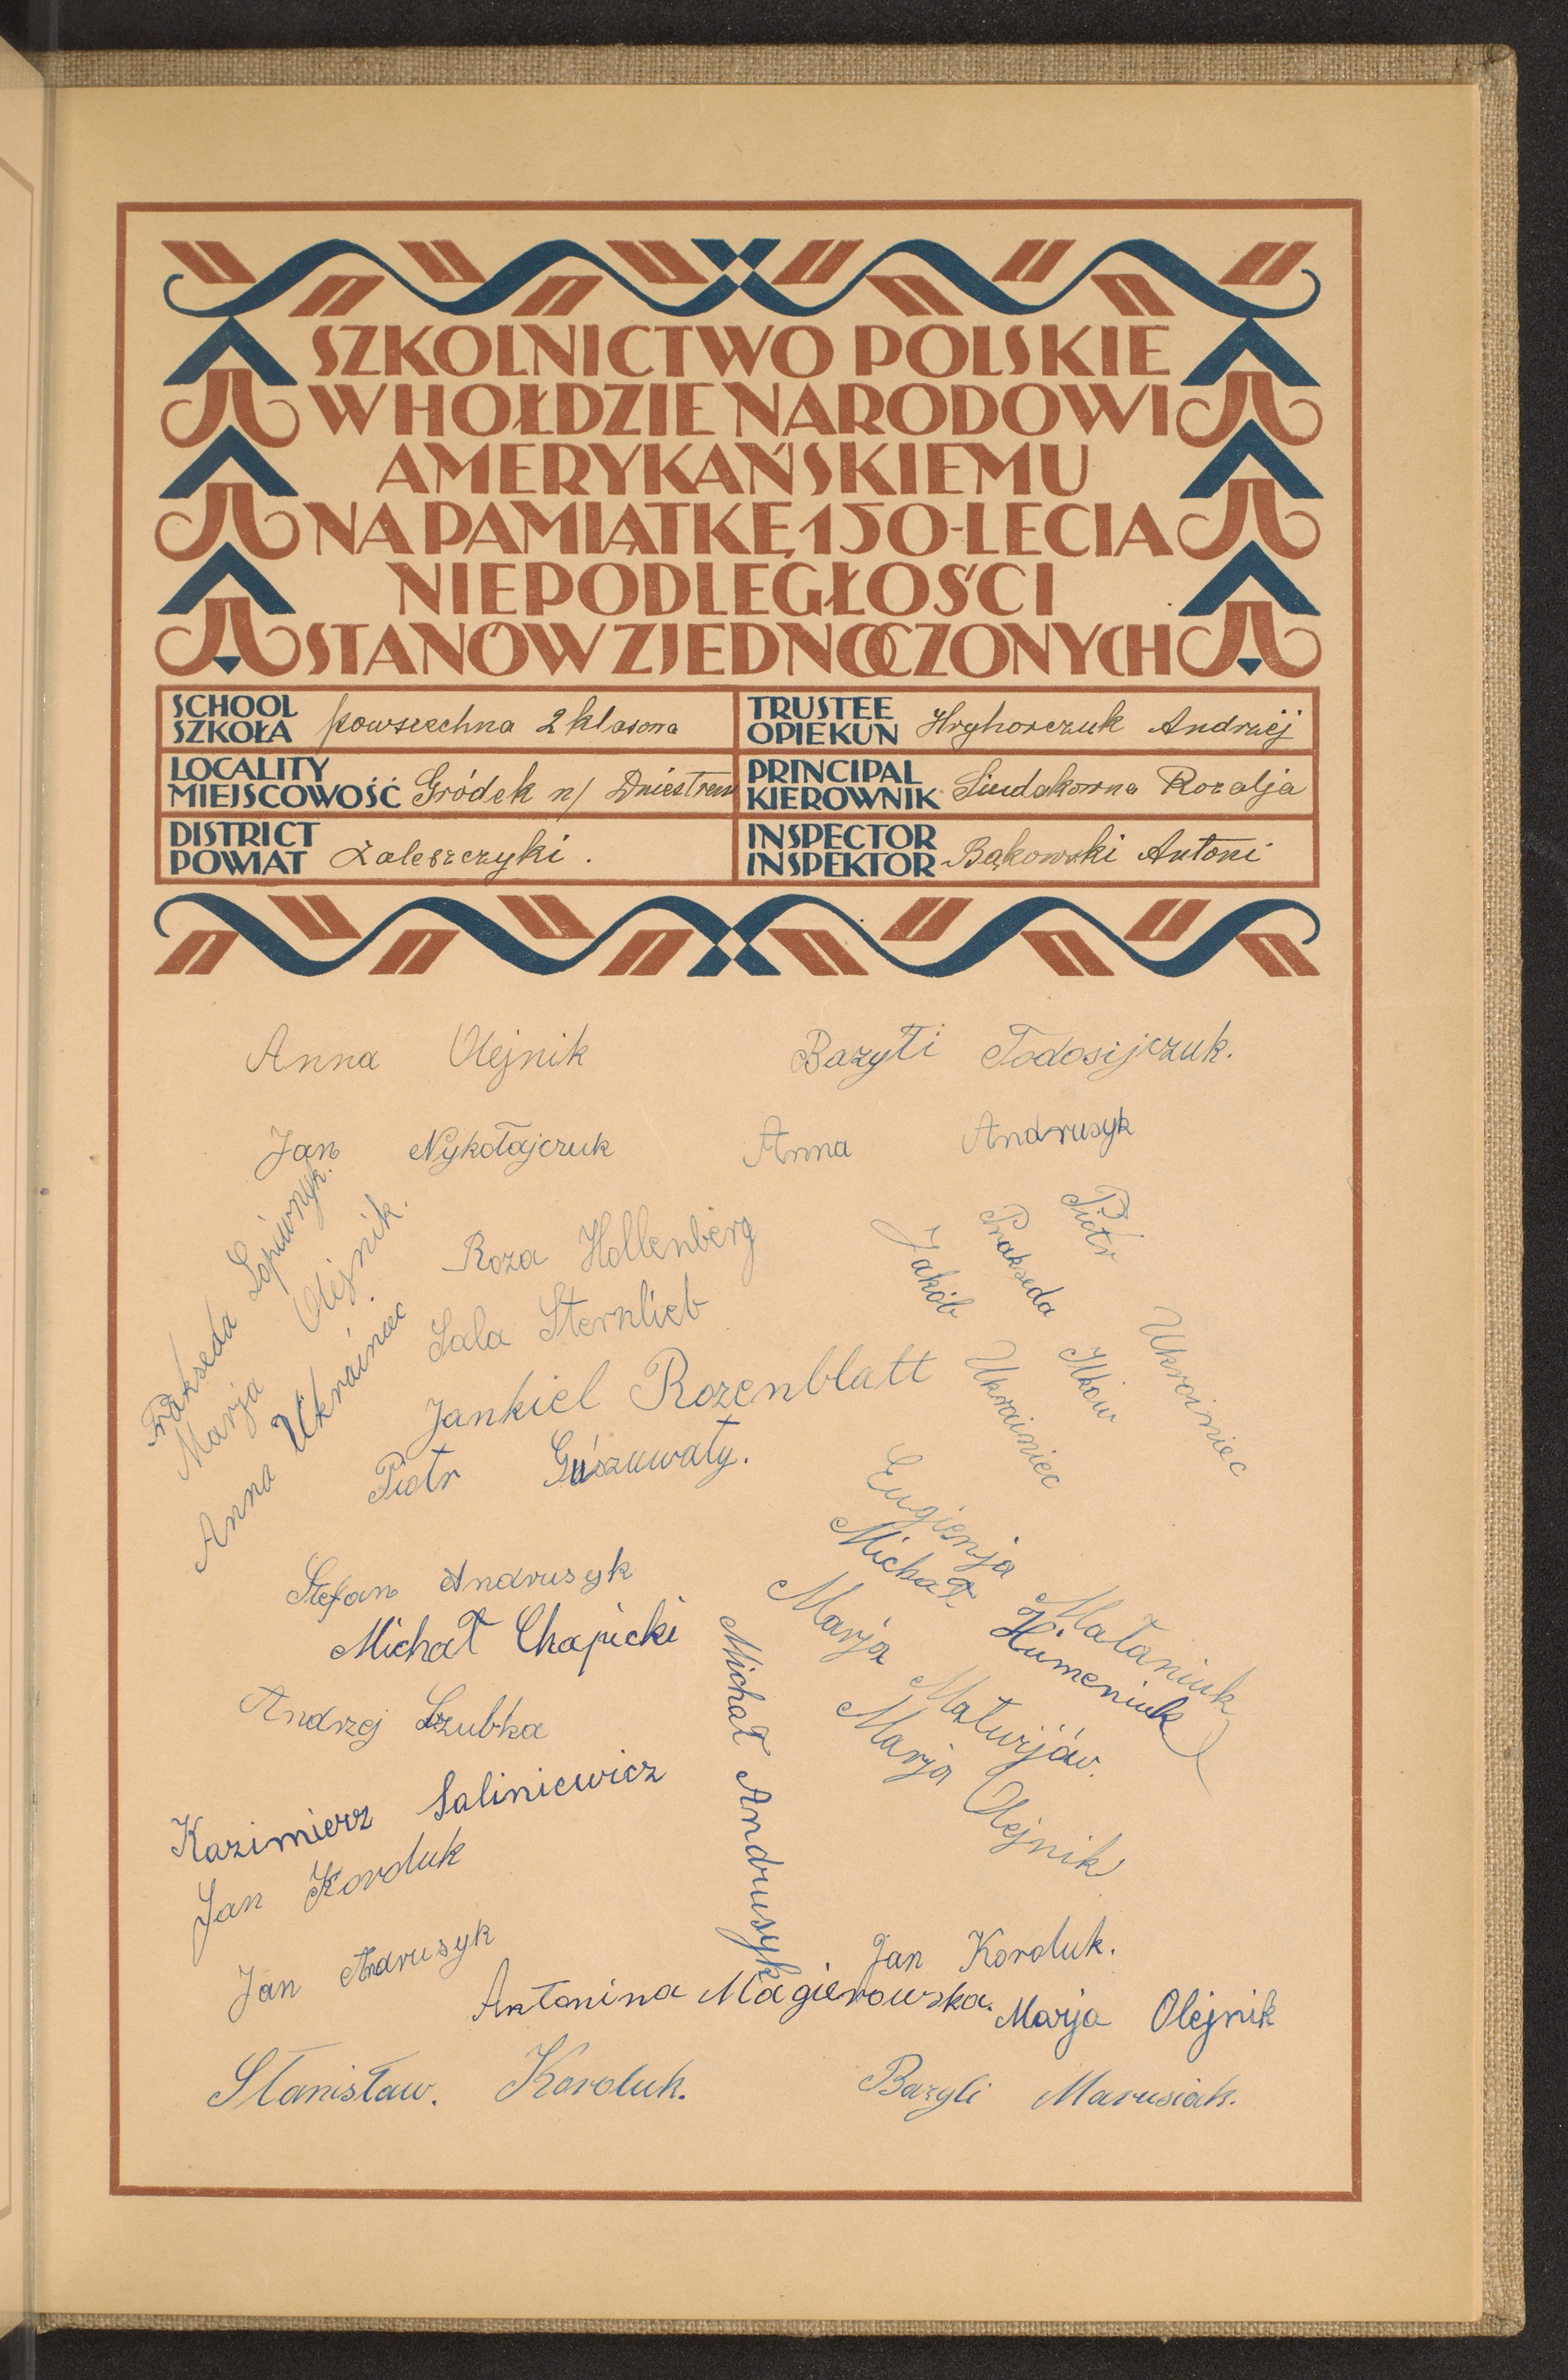 SZKOLNICTWO POLSKIE
W HOŁDZIE NARODOWI
AMERYKAŃSKIEMU
NA PAMIĄTKĘ 150-LECIA
NIEPODLEGŁOŚCI
STANÓW ZJEDNOCZONYCH
SCHOOL
SZKOŁA powszechna 2 klasowa
TRUSTEE
OPIEKUN Hryhorczuk Andrzéj
LOCALITY
MIEJSCOWOŚĆ Gródek n/ Dniestrem
PRINCIPAL
KIEROWNIK Siudakowna Rozalja
DISTRICT
POWIAT Zaleszczyki.
INSPECTOR
INSPEKTOR Bąkowski Antoni
Anna Olejnik
Bazyłi Todosijczuk.
Jan Nykołajczuk
Anna Andrusyk
Prakseda Łopiwnyk.
Marja Olejnik.
Anna Ukrainiec
Roza Hollenberg
Sala Sternlieb
Jankiel Rozenblatt
Piotr
Piotr Ukrainiec
Prakseda Ilkow
Jakób Ukrainiec
Eugienja Mataniuk
Michał Humeniuk
Marja Matwijów.
Marja Olejnik
Stefan Andrusyk
Michał Chapicki
Michał Andrusyk
Andrzej
Kazimierz Saliniewicz
Jan Korduk
Jan Andrusyk
Jan Korduk.
Antonina Magierowska.
Marja Olejnik
Stanisław. Korduk.
Bazyli Marusiak.